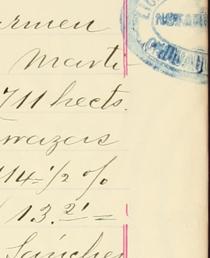 armen
Marti
711 hects.
rrazas
114 1/2 %
13.21 =
Sánchez